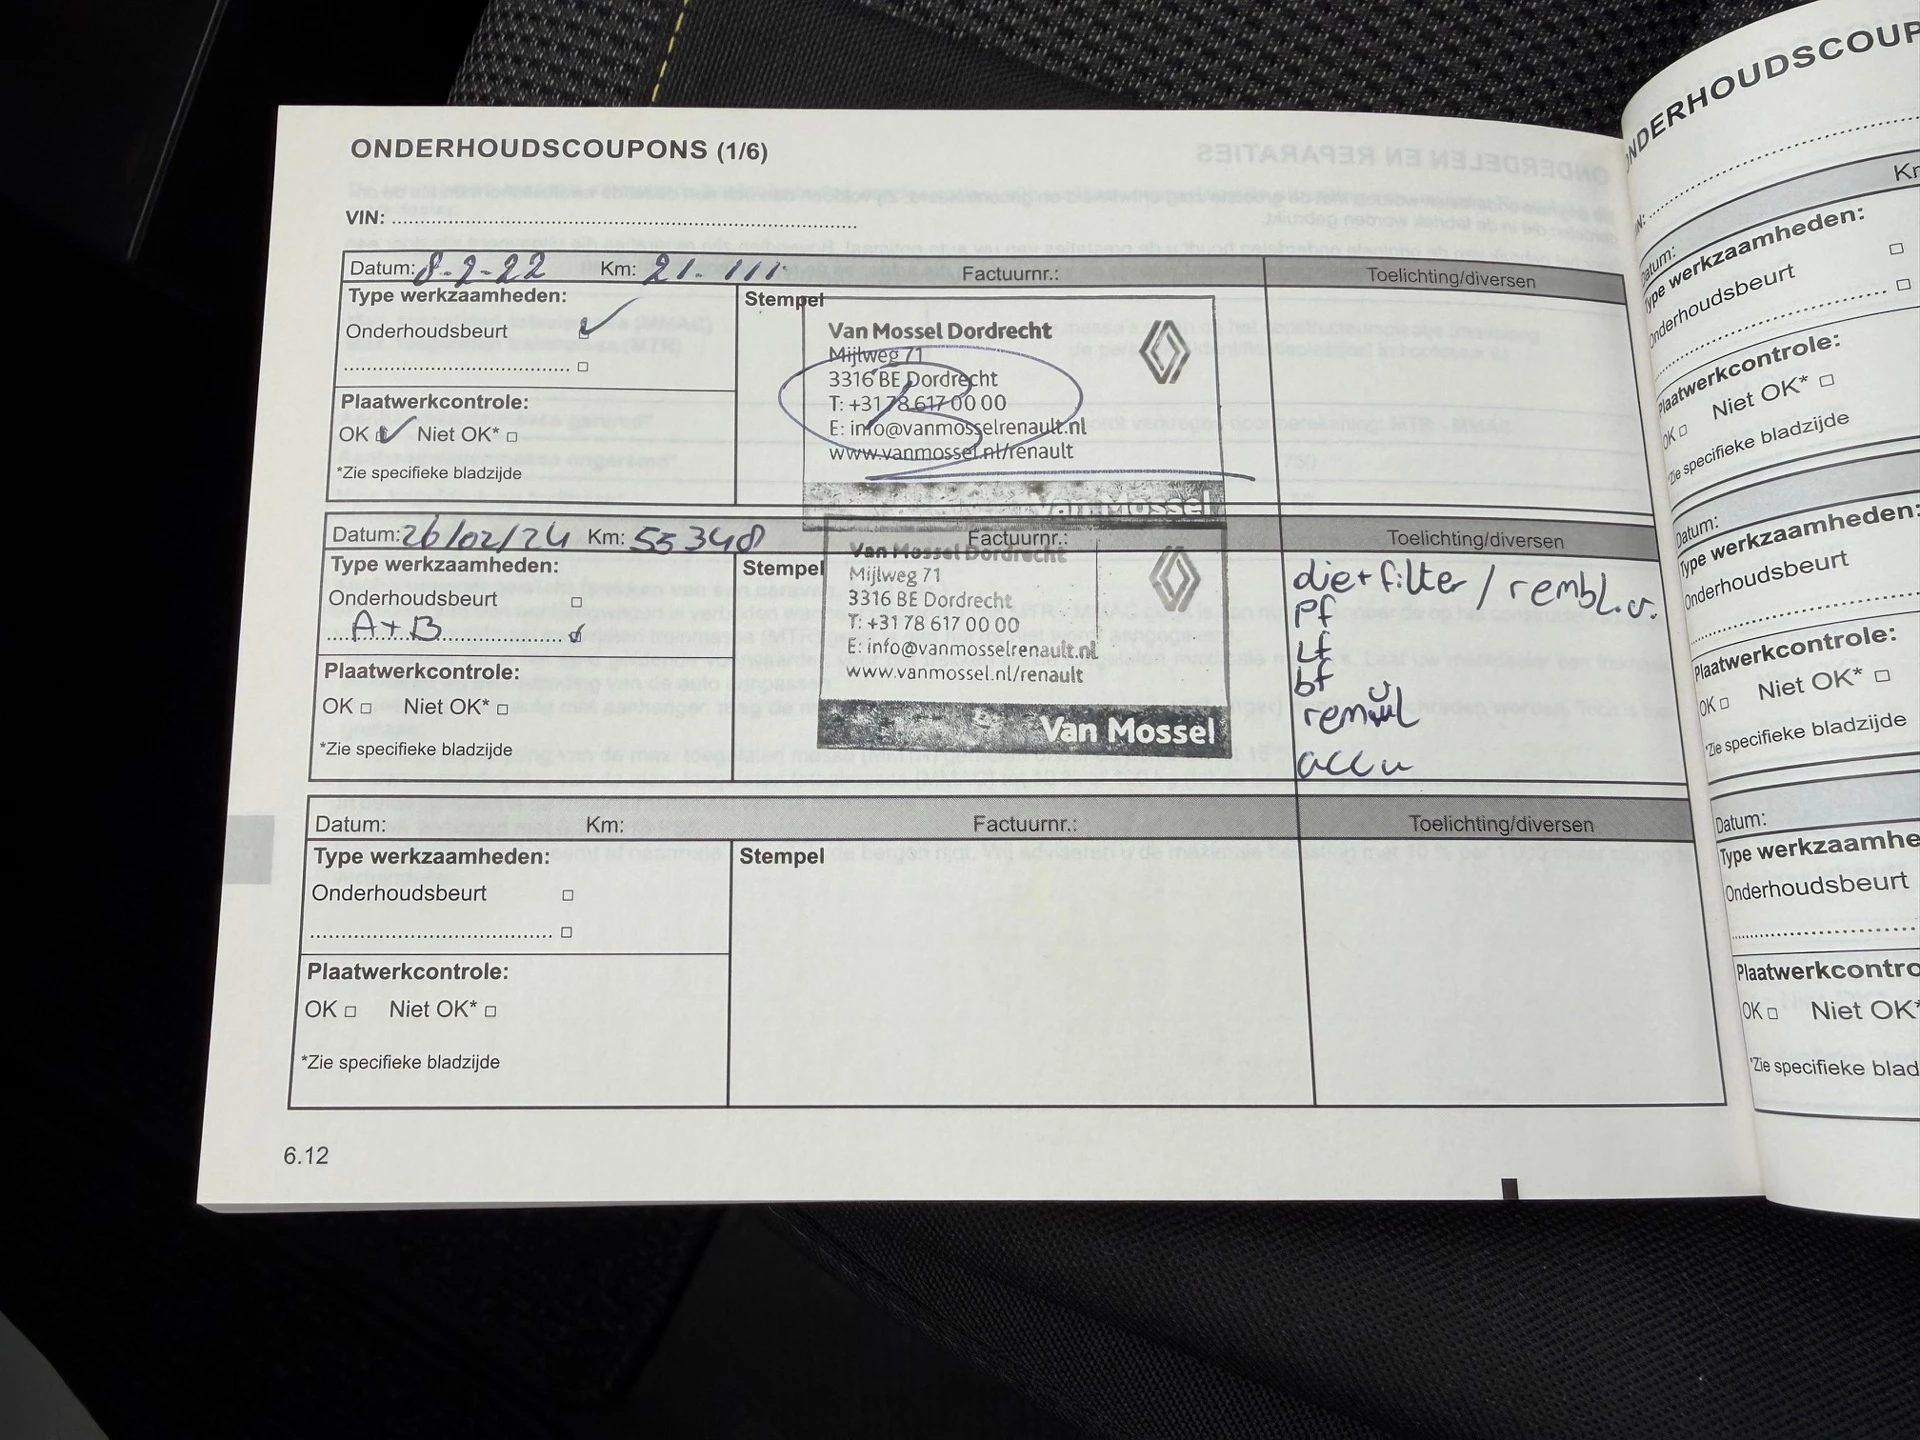 ONDERHOUDSCOUPONS (1/6)
VIN:
Datum: 8-2-22 Km: 21.111 Factuurnr.: Toelichting/diversen
Type werkzaamheden:
Onderhoudsbeurt
Plaatwerkcontrole:
OK Niet OK*
*Zie specifieke bladzijde
Stempel
Van Mossel Dordrecht
Mijlweg 71
3316 BE Dordrecht
T: +31 78 617 00 00
E: info@vanmosselrenault.nl
www.vanmossel.nl/renault
Van Mossel
Datum: 26/02/24 Km: 55348 Factuurnr.: Toelichting/diversen
Type werkzaamheden:
Onderhoudsbeurt
A+B
Plaatwerkcontrole:
OK Niet OK*
*Zie specifieke bladzijde
Stempel
Van Mossel Dordrecht
Mijlweg 71
3316 BE Dordrecht
T: +31 78 617 00 00
E: info@vanmosselrenault.nl
www.vanmossel.nl/renault
Van Mossel
olie+filter / rembl.v.
pf
Lf
bf
accu
Datum: Km: Factuurnr.: Toelichting/diversen
Type werkzaamheden:
Onderhoudsbeurt
Plaatwerkcontrole:
OK Niet OK*
*Zie specifieke bladzijde
Stempel
6.12
ONDERHOUDSCOUP
Datum:
Type werkzaamheden:
Onderhoudsbeurt
Plaatwerkcontrole:
OK Niet OK*
*Zie specifieke bladzijde
Datum:
Type werkzaamheden:
Onderhoudsbeurt
Plaatwerkcontrole:
OK Niet OK*
*Zie specifieke bladzijde
Datum:
Type werkzaamhe
Onderhoudsbeurt
Plaatwerkcontro
OK Niet OK*
*Zie specifieke blad